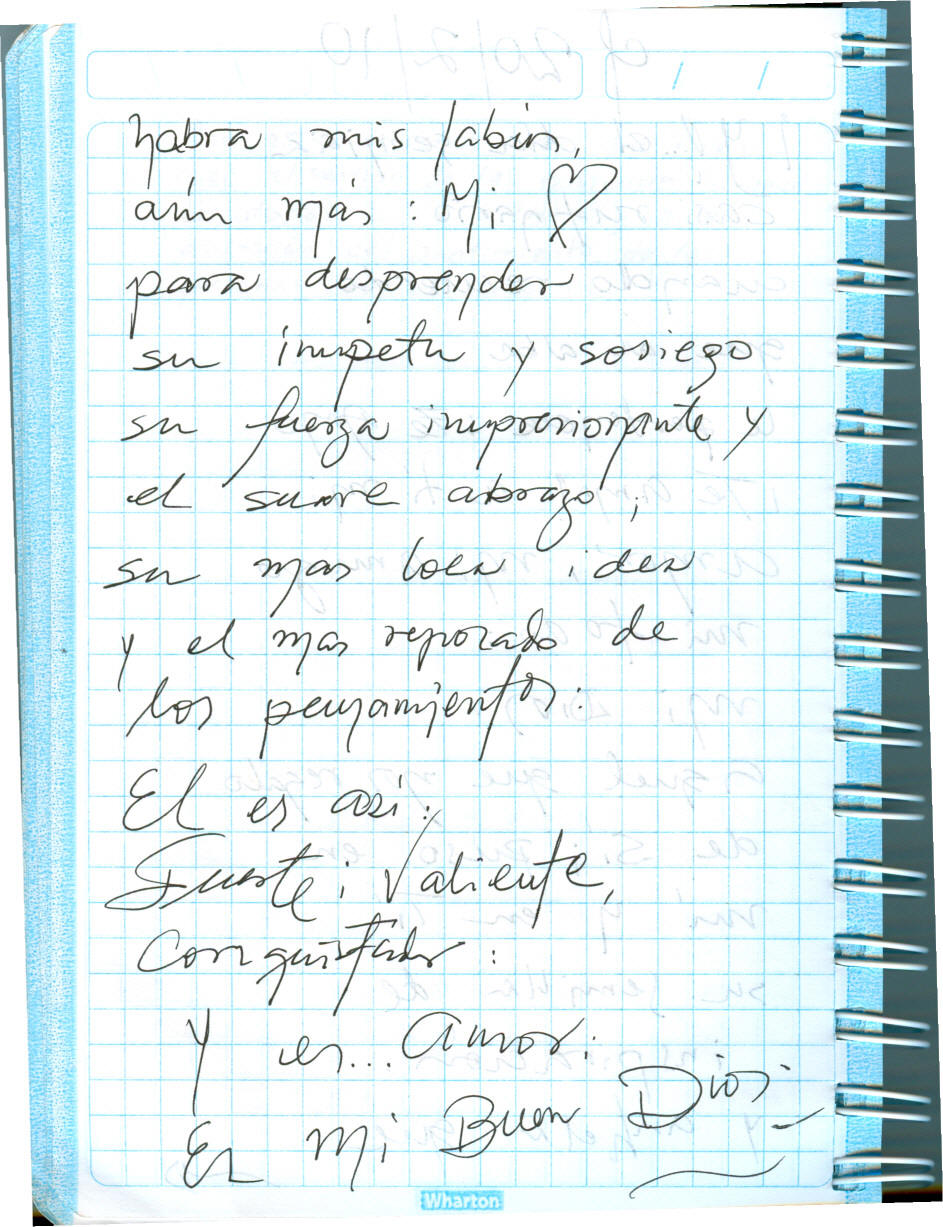 habra mis labios,
aún más : Mi ♡
para desprender
su impetu y sosiego
su fuerza impresionante y
el suave abrazo;
su mas loca idea
y el mas reposado de
los pensamientos.
El es asi:
Fuerte; Valiente,
Conquistador :
Y es... Amor.
Es Mi Buen Dios.
Wharton